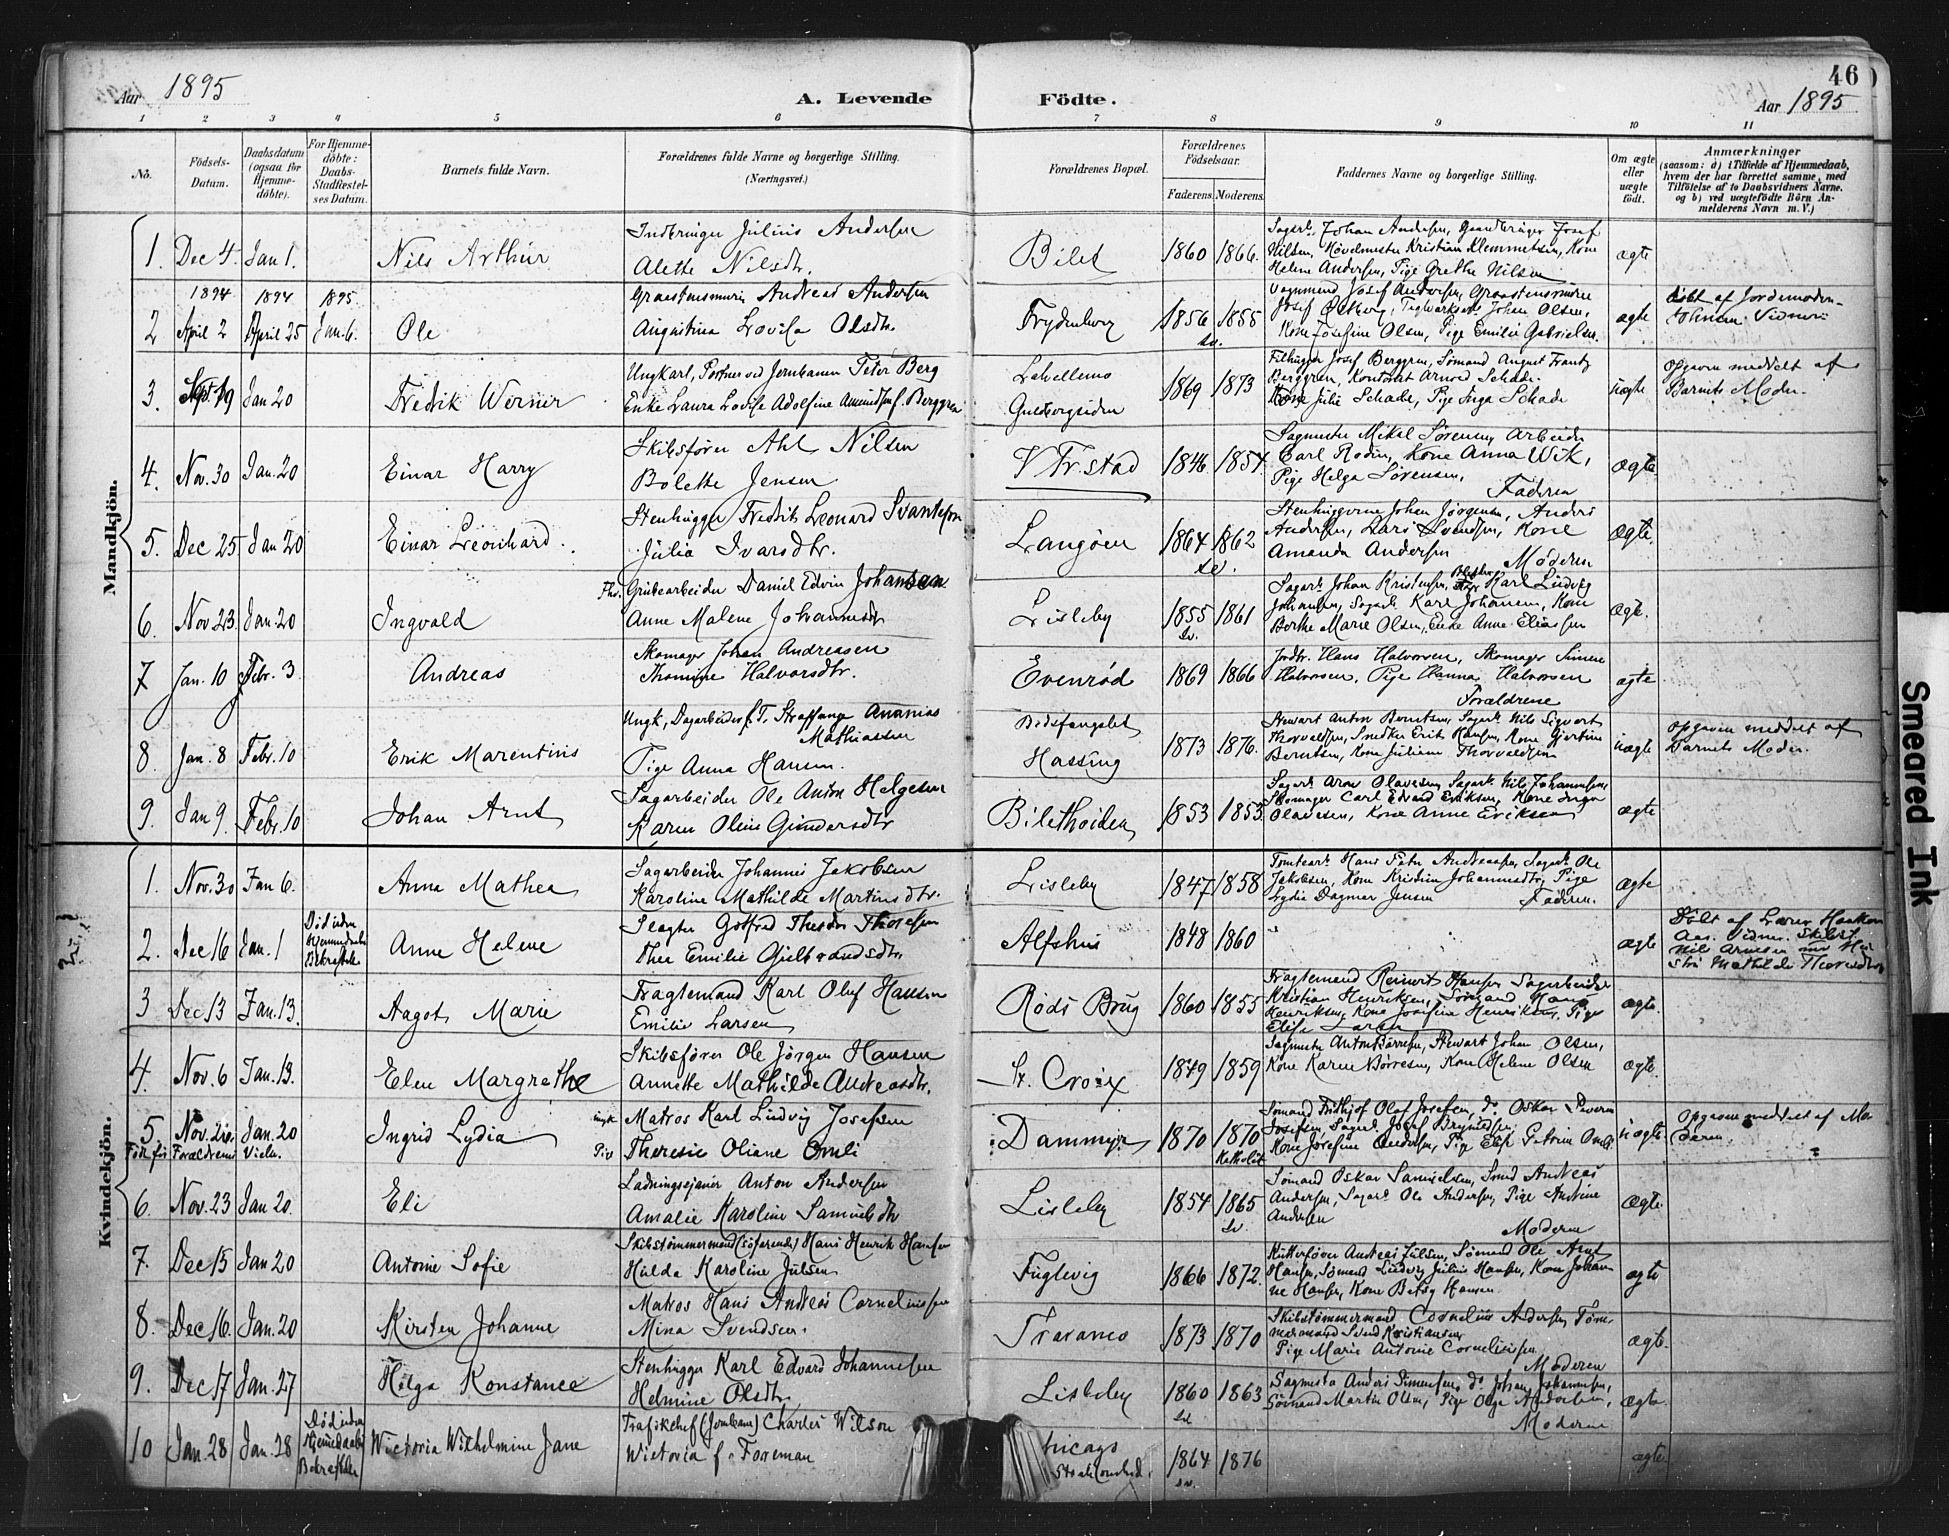 46
Aar 1895
A. Levende Födte.
Aar 1895
1 2 3 4 5 6 7 8 9 10 11
No.
Födsels-Datum.
Daabsdatum (ogsaa for Hjemme-döbte).
For Hjemme-döbte: Daabs-Stadfestel-ses Datum.
Barnets fulde Navn.
Forældrenes fulde Navne og borgerlige Stilling.
(Næringsvei.)
Forældrenes Bopæl.
Forældrenes Födselsaar.
Faderens. Moderens.
Faddernes Navne og borgerlige Stilling.
Om ægte eller uægte födt.
Anmærkninger
(saasom: a) i Tilfælde af Hjemmedaab,
hvem der har forrettet samme, med
Tilföielse af to Daabsvidners Navne.
og b) ved uægtefödte Börn An-
melderens Navn m. V.)
Mandkjön.
1. Dec 4. Jan 1. Nils Arthur
Julius Andersen
Alette Nilsdtr.
Bilet 1860 1866.
Johan Andersen, Josef
Nilsen, Kristian Klemmetsen, Kone
Helene Andersen, Pige Grethe Nilsen
ægte
1894 1894 1895
2 April 2 April 25 Jan. 6. Ole
Graastensmurer Andreas Andersen
Augustina Lovisa Olsdtr.
Frydenberg 1856 1855
sv.
Vognmand Josef Andersen, Graastensmurer
Josef Østberg, Johan Olsen,
Kone Josefine Olsen, Pige Emilie Gabrielsen.
ægte
Døbt af Jordemoderen
3. Jan 20 Fredrik Werner
Ungkarl, Portner ved Jernbanen Peter Berg
Enke Laura Lovise Adolfine Amundsen f. Berggren
Gulbergsiden
1869 1873
Filhugger Josef Berggren, Sømand August Frantz
Berggren, Kontorist Arnord Schade
Kone Julie Schade, Pige Inga Schade
uægte
Opgaven meddelt af
Barnets Moder.
4. Nov. 30 Jan. 20 Einar Harry
Skibsfører Ahl Nilsen
Bolette Jensen
V Fr.stad 1846 1854
Sagmester Mikal Sørensen, Arbeider
Carl Rodin, Kone Anna Wik,
Pige Helga Sørensen,
Faderen
ægte.
5. Dec 25 Jan 20 Einar Leonhard.
Stenhugger Fredrik Leonard Svantesen
Julia Ivarsdtr.
Langøen 1864 1862
sv.
Stenhuggerne Johan Jörgensen, Anders
Andersen, Lars Svendsen, Kone
Amanda Andersen
Moderen
Ægte.
6. Nov 23. Jan. 20 Ingvald
Grubearbeider Daniel Edvin Johansen
Anne Malene Johannesdtr
Lisleby 1855 1861
sv.
Sagarb. Johan Kristensen, Karl Ludvig
Johansen, Sagarb. Karl Johansen, Kone
Berthe Marie Olsen, Enke Anne Eliassen
ægte.
7 Jan. 10 Febr. 3 Andreas
Skomager Johan Andreasen
Thomine Halvorsdtr.
Evenrød 1869 1866
Jordbr. Hans Halvorsen, Skomager Simen
Halvorsen, Pige Hanna Halvorsen
Forældrene
ægte
8. Jan. 8 Febr. 10 Erik Marentius
Ungk, Dagarbeider, Ananias
Mathiassen
Pige Anna Hansen.
Bodsfængslet
Hassing 1873 1876.
Stewart Anton Berntsen, Sagarb. Nils Sigvert
Thorvaldsen, Snedker Erik Hansen, Kone Gjertine
Berntsen, Kone Juliane Thorvaldsen
uægte
Opgaven meddelt af
Barnets Moder.
9. Jan 9. Febr. 10 Johan Arnt
Sagarbeider Ole Anton Helgesen
Karen Oline Gundersdtr
Bilethoiden 1853 1853
Sagarb. Aron Olavesen, Sagarb. Nils Johannesen,
Skomager Carl Edvard Eriksen, Kone Inga
Olavesen, Kone Anne Eriksen
ægte
Kvindekjön.
1. Nov. 30 Jan 6. Anna Mathea
Sagarbeider Johannes Jakobsen
Karoline Mathilde Martinsdtr.
Lisleby 1847 1858
Tomtearb. Hans Peter Andreassen, Sagarb. Ole
Jakobsen, Kone Kristine Johannesdtr, Pige
Lydia Dagmar Jensen Faderen.
ægte
2. Dec 16 Jan. 1
Død uden
Hjemmedaabs
Bekræftelse
Anne Helene
Slagter Gotfred Theodor Thoresen
Thea Emilie Gulbrandsdtr.
Alfshus 1848 1860
ægte
Døbt af Lærer Haakon
Aas. Vidner: Skibst.
Nils Arnesen
Mathilde
3 Dec 13 Jan. 13. Aagot Marie
Fragtemand Karl Oluf Hansen
Emilie Larsen
Røds Brug 1860 1855
Fragtemand Reinert Hansen, Sagarbeider
Kristian Henriksen, Sømand Hans
Henriksen, Kone Josefine Henriksen, Pige
Elise Larsen
ægte.
4. Nov. 6 Jan. 13. Elen Margrethe
Skibsfører Ole Jörgen Hansen
Annette Mathilde Andreasdtr.
St. Croix 1849 1859
Sagmester Anton Børresen, Stewart Johan Olsen,
Kone Karen Børresen, Kone Helene Olsen
ægte.
5 Jan. 20 Ingrid Lydia
Født før Forældrenes Vielse.
ungk. Matros Karl Ludvig Josefsen
Pige Theresie Oliane Omli
Dammyr 1870 1870
Katholik
Sømand Fridtjof Olaf Josefsen, do Oskar
Josefsen, Sagarb. Josef Bryntesen,
Kone Josefine Andersen, Pige Else Petrine Omli
uægte.
Opgaven meddelt af Mo-
deren.
6. Nov. 23 Jan 20. Eli
Ladningsejaner Anton Andersen
Amalie Karoline Samuelsdtr
Lisleby 1854 1865
sv.
Sømand Oskar Samuelsen, Smed Andreas
Andersen, Sagarb. Ole Andersen, Pige Andrine
Andersen
Moderen
Ægte.
7. Dec 15 Jan 20 Antonie Sofie
Skibstømmermand (søfarende) Hans Henrik Hansen
Hulda Karoline Julsen
Fuglevig 1866 1872.
Kutterfører Andreas Julsen, Sømand Ole Arnt
Hansen, Sømand Ludvig Julius Hansen, Kone Johan-
ne Hansen, Kone Betsy Hansen
ægte
8. Dec 16. Jan. 20 Kirsten Johanne
Matros Hans Andreas Corneliussen
Mina Svendsen.
Traramo 1873 1870
Skibstømmermand Cornelius Andersen, Tøm-
mermand Svend Kristiansen
Pige Marie Antonie Corneliusen
Moderen
ægte.
9. Dec 17 Jan. 27 Helga Konstance
Stenhugger Karl Edvard Johannesen
Helmine Olsdtr,
Lisleby 1860 1863
sv.
Sagmester Anders Simensen, do Johan Johannesen,
Sømand Martin Olsen, Pige Olga Andersen,
Moderen
ægte.
10 Jan. 28 Jan. 28
Død uden
Hjemmedaabs
Bekræftelse
Wictoria Wilhelmine Jane
Trafikchef (Jernbane) Charles Wilson
Wictoria f. Foreman
hicago
1864 1876
sv.
ægte.
Smeared Ink